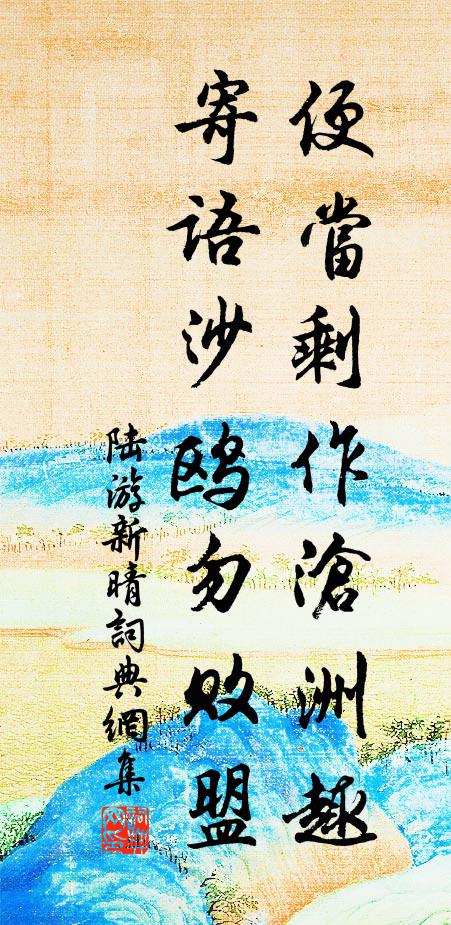 便當剩作滄洲趣
寄語沙鸥勿敗盟
陆游新晴詞典網集